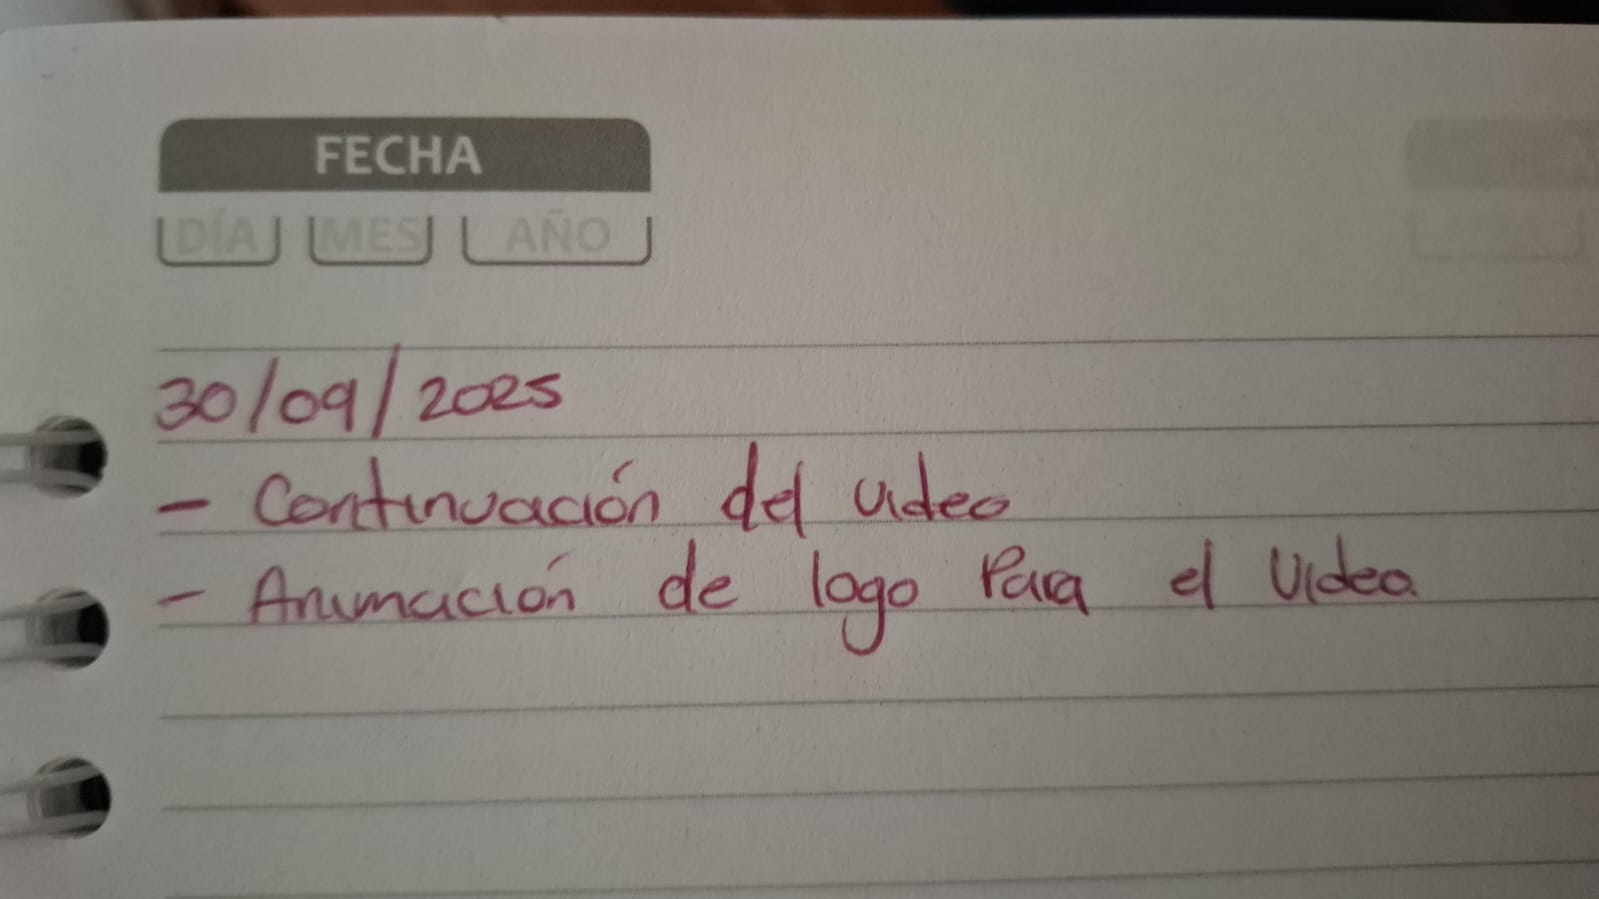 FECHA
DÍA MES AÑO
30/09/2025
- Continuación del video
- Animación de logo Para el Video.